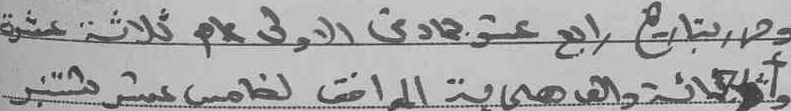 وحرر بتاريخ رابع عشر جمادى الاولى عام ثلاثة عشرة
وأربعمائة والف هجرية الموافق لخامس عشر شتنبر